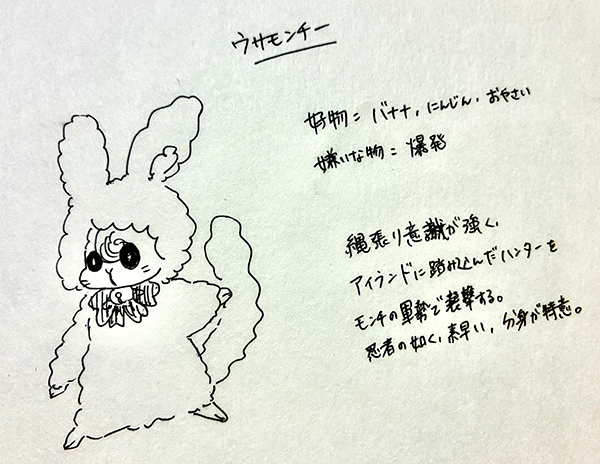 ウサモンチー
好物 = バナナ, にんじん, おやさい
嫌いな物 = 爆発
縄張り意識が強く、
アイランドに踏み込んだハンターを
モンチの軍勢で襲撃する。
忍者の如く、素早い, 分身が特意。